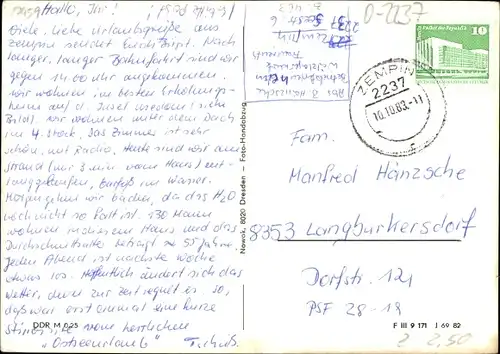 Hallo, Ihr!
Viele, liebe Urlaubsgrüße aus
Zempin sendet Euch Nach
langer, langer Bahnfahrt sind wir
gegen 14.00 Uhr angekommen.
Wir wohnen im besten Erholungs-
heim auf d. Insel Usedom (siehe
Bild). Wir wohnen unter dem Dach
im 4. Stock. Das Zimmer ist sehr
schön, mit Radio. Heute sind wir am
Strand (nur 3 min vom Haus) ent-
langgelaufen, barfuß im Wasser.
Morgen gehen wir baden, da das H2O
noch nicht so kalt ist. 130 Mann
wohnen in diesem Haus und das
Durchschnittsalter beträgt 55 Jahre.
Jeden Abend ist nächste Woche
etwas los. Hoffentlich ändert sich das
Wetter, denn zur Zeit regnet es. So,
das war erst einmal eine kurze
vom herrlichen
"Ostseeurlaub"
DDR M 0,25
Nowak, 8020 Dresden - Foto-Handabzug
2237 Zempin
D-2237
10
ZEMPIN
2237
10.10.83.-11
Fam.
Manfred Hänzsche
8353 Langburkersdorf
Dorfstr. 121
PSF 28-19
F III 9 171 J 69 82
2,50